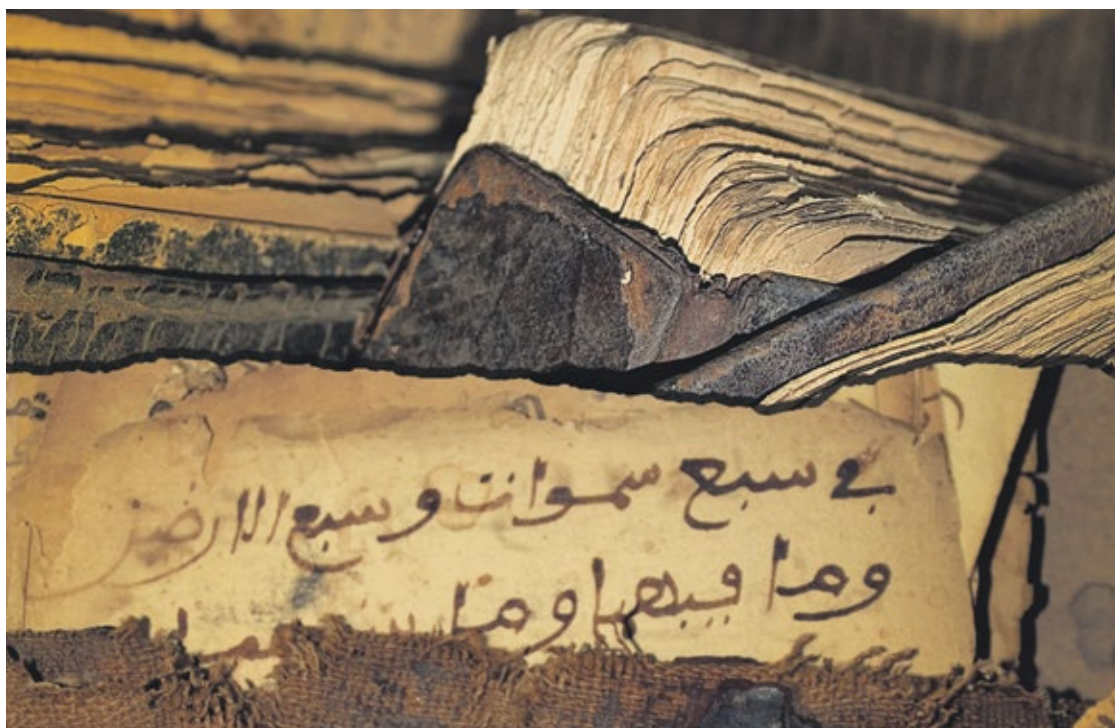 في سبع سموات وسبع الارض
وما فيها وما